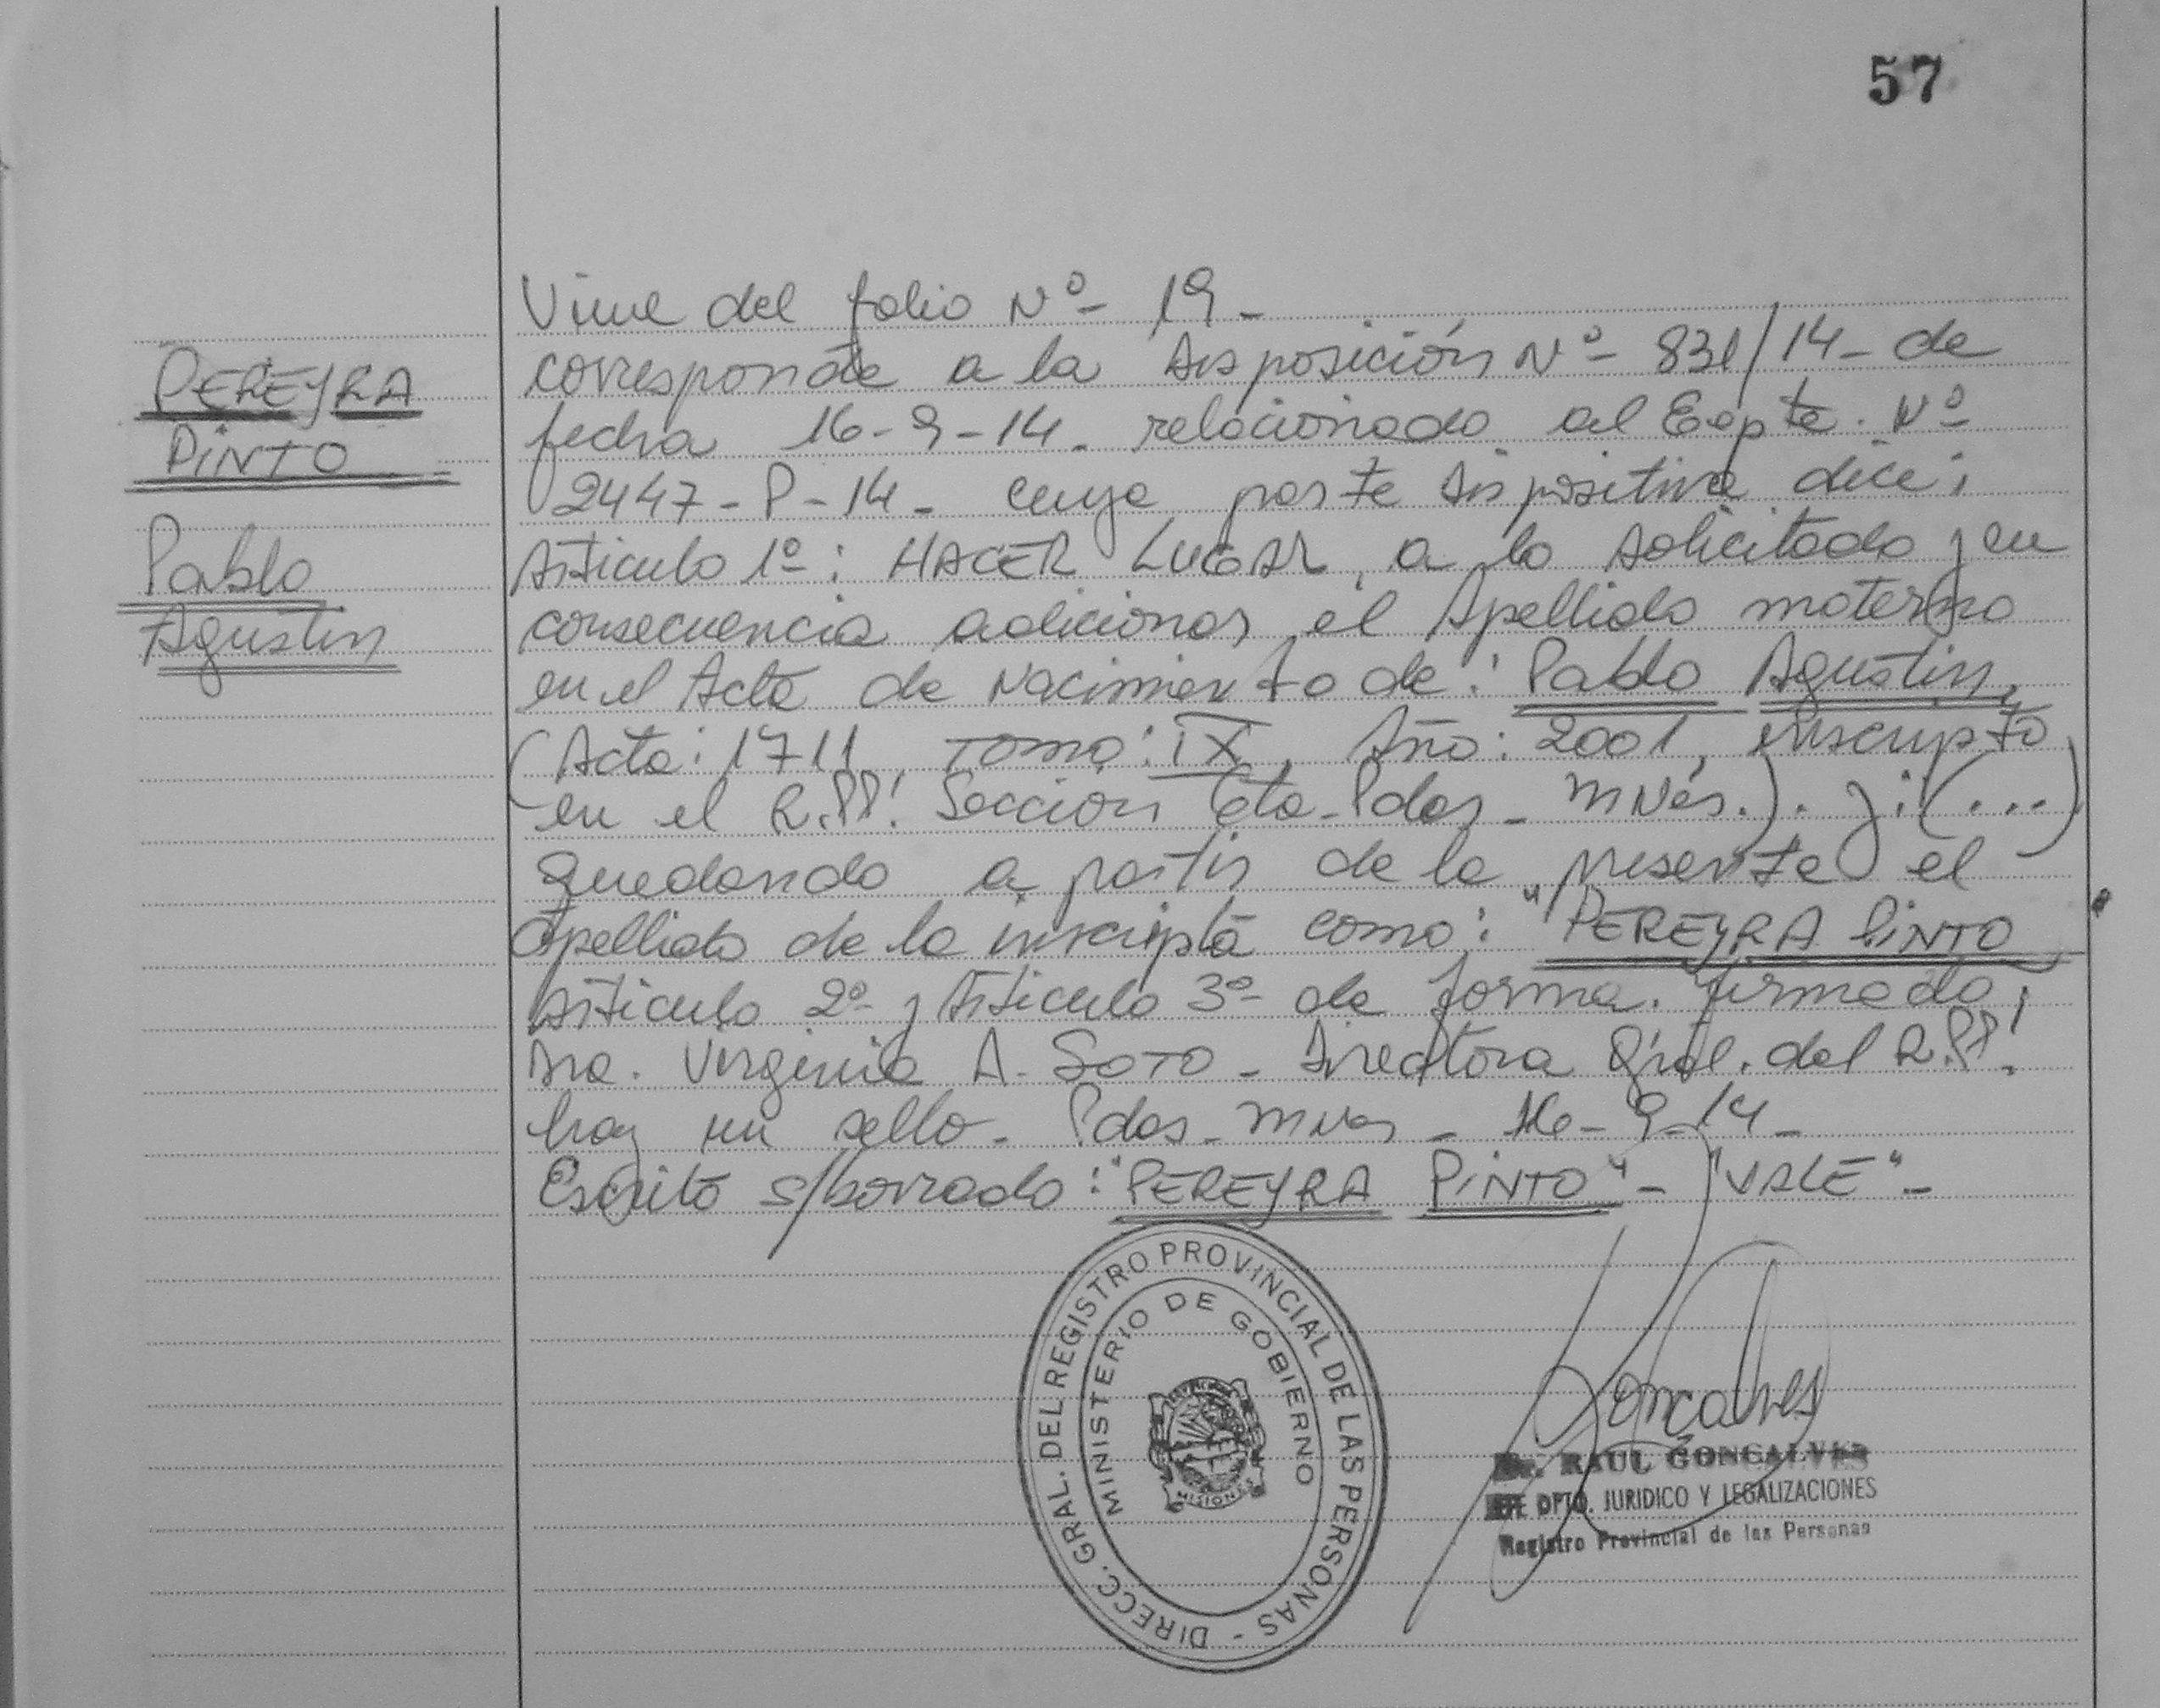 57
PEREYRA
PINTO
Pablo
Agustin
Viene del folio Nº- 19-
corresponde a la Disposición Nº- 831/14- de
fecha 16-9-14- relacionado al Expte. Nº-
2447-P-14- cuya parte dispositiva dice:
Artículo 1º: HACER LUGAR, a lo solicitado y en
consecuencia adicionar el Apellido materno
en el Acta de Nacimiento de: Pablo Agustin,
(Acta: 1711 Tomo: IX, Año: 2001, inscripto
en el R.PP! Sección 6ta- Pdas- Mnes.). y: (...)
quedando a partir de la presente el
apellido de la inscripta como: "PEREYRA PINTO"
Artículo 2º- y Artículo 3º- de forma. firmado:
Dra. Virginia A. SOTO - Directora Gral. del R.PP!.
hay un sello- Pdas- Mnes- 16-9-14-
Escrito s/borrado: "PEREYRA PINTO"- "VALE"-
DIRECC. GRAL. DEL REGISTRO PROVINCIAL DE LAS PERSONAS -
MINISTERIO DE GOBIERNO
MISIONES
Goncalves
Dr. RAUL GONCALVES
JEFE DPTO. JURIDICO Y LEGALIZACIONES
Registro Provincial de las Personas